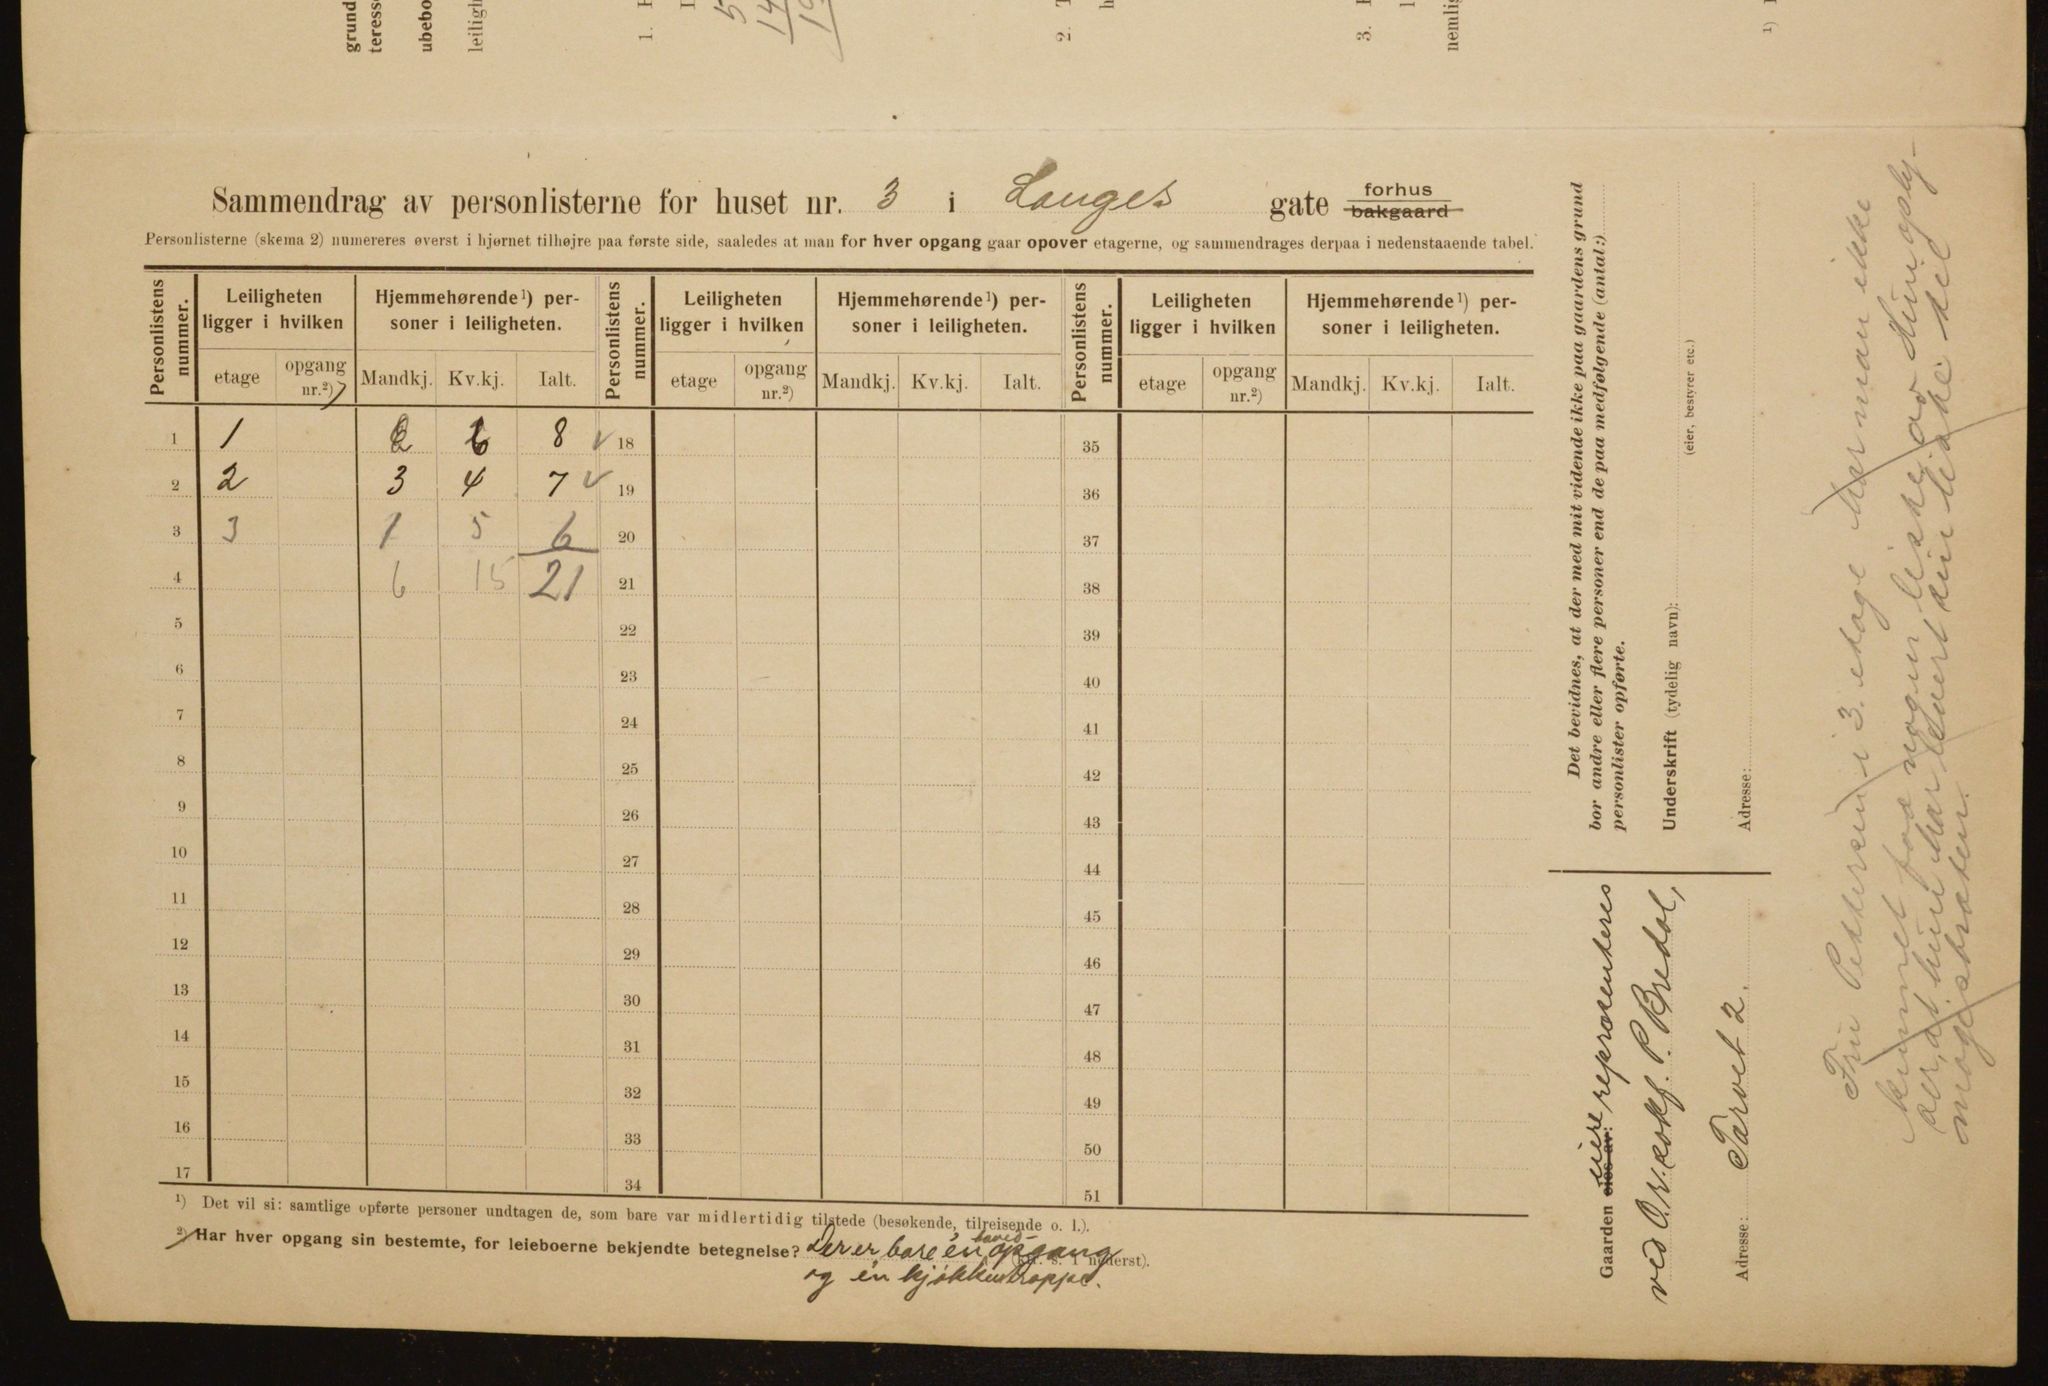 grund
teresse
ubebo
leiligh
1.
5
14
2.
3.
nemlig
1)
Sammendrag av personlisterne for huset nr. 3 i Langes gate forhus
bakgaard
Personlisterne (skema 2) numereres øverst i hjørnet tilhøjre paa første side, saaledes at man for hver opgang gaar opover etagerne, og sammendrages derpaa i nedenstaaende tabel.
Personlistens nummer. Leiligheten ligger i hvilken Hjemmehørende¹) personer i leiligheten. Personlistens nummer. Leiligheten ligger i hvilken Hjemmehørende¹) personer i leiligheten. Personlistens nummer. Leiligheten ligger i hvilken Hjemmehørende¹) personer i leiligheten.
etage opgang nr.²) Mandkj. Kv.kj. Ialt. etage opgang nr.²) Mandkj. Kv.kj. Ialt. etage opgang nr.²) Mandkj. Kv.kj. Ialt.
1 1 2 6 8 18 35
2 2 3 4 7 19 36
3 3 1 5 6 20 37
4 6 15 21 21 38
5 22 39
6 23 40
7 24 41
8 25 42
9 26 43
10 27 44
11 28 45
12 29 46
13 30 47
14 31 48
15 32 49
16 33 50
17 34 51
¹) Det vil si: samtlige opførte personer undtagen de, som bare var midlertidig tilstede (besøkende, tilreisende o. l.).
²) Har hver opgang sin bestemte, for leieboerne bekjendte betegnelse? Der er bare én hoved-opgang
og én kjøkkentrappe. (kfr. s. 1 nederst).
Det bevidnes, at der med mit vidende ikke paa gaardens grund
bor andre eller flere personer end de paa medfølgende (antal:)
personlister opførte.
Underskrift (tydelig navn):
(eier, bestyrer etc.)
Adresse:
Gaarden eies av: eiere repræsenteres
ved O.r.sakf. P. Bredal,
Adresse: Torvet 2.
Fru Pettersen i 3. etage har man ikke
kunnet faa nogen liste av. Hun oply-
ser, at hun har levert sin liste til
magistraten.